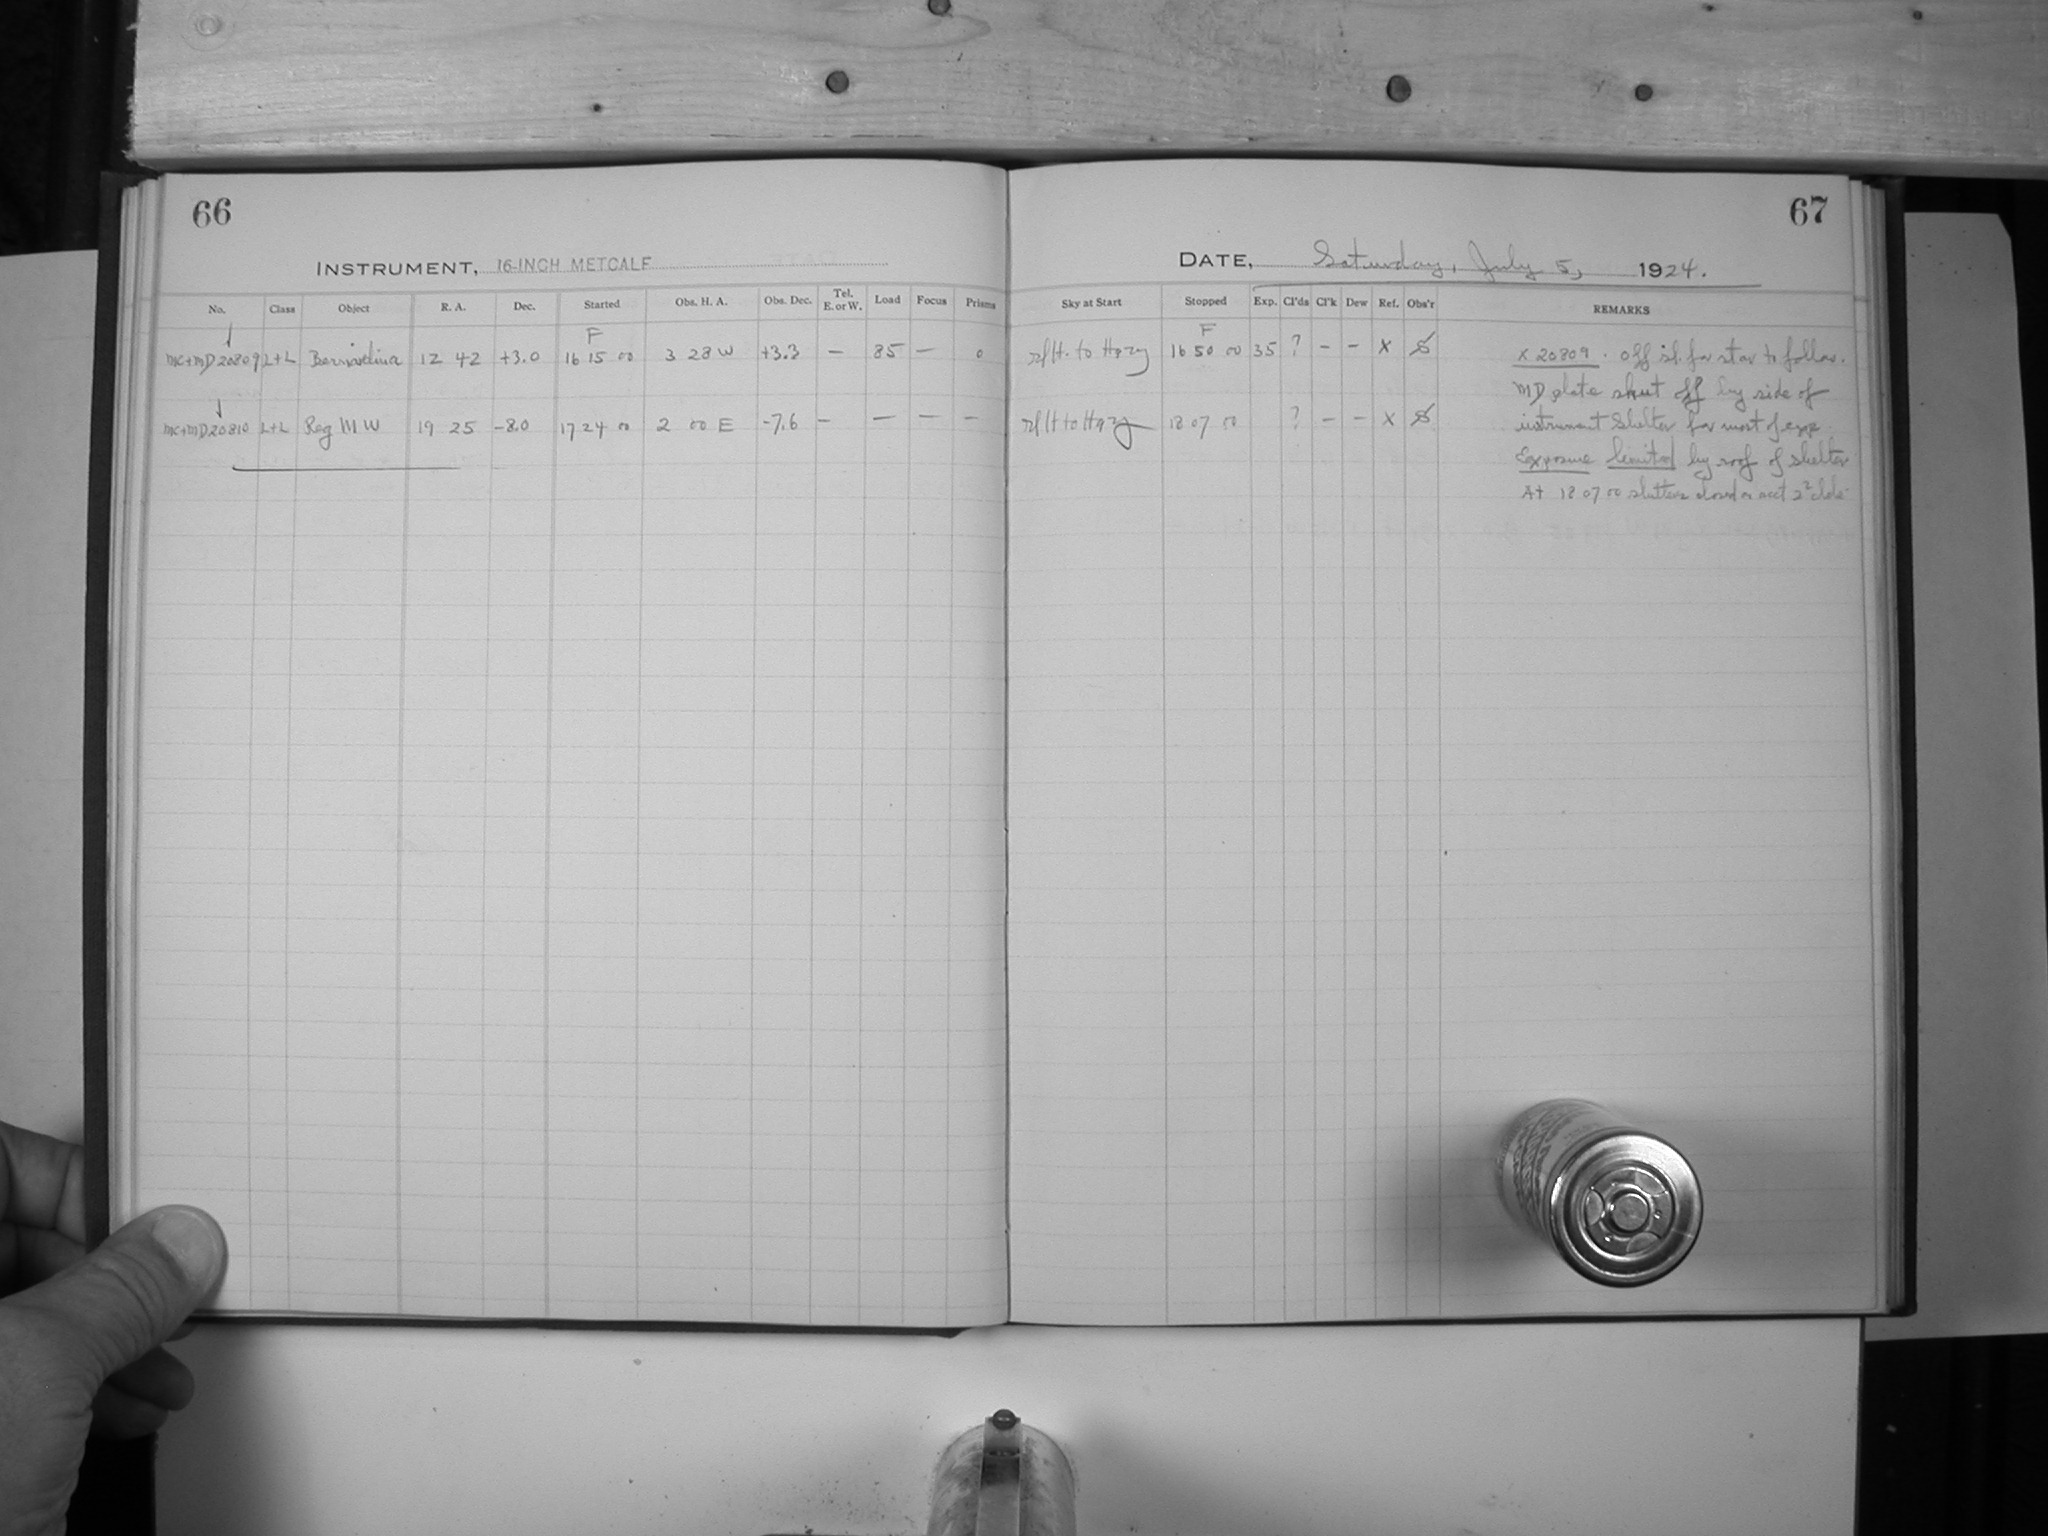 66
67
INSTRUMENT, 16-INCH METCALF
DATE, Saturday, July 5, 1924.
No. Class Object R. A. Dec. Started Obs. H. A. Obs. Dec. Tel. E. or W. Load Focus Prisms Sky at Start Stopped Exp. Cl'ds Cl'k Dew Ref. Obs'r REMARKS
F F
MC+MD 20809 L+L 12 42 +3.0 16 15 00 3 28 W +3.3 — 85 — 0 to Hazy 16 50 00 35 ? – – X x 20809. Off sl. for star to follow.
MD plate shut off by side of
MC+MD 20810 L+L Reg MW 19 25 -8.0 17 24 00 2 00 E -7.6 — — — — to Hazy 18 07 00 ? – – X instrument shelter for most of exp.
Exposure limited by roof of shelter
At 18 07 00 shutters closed on acct